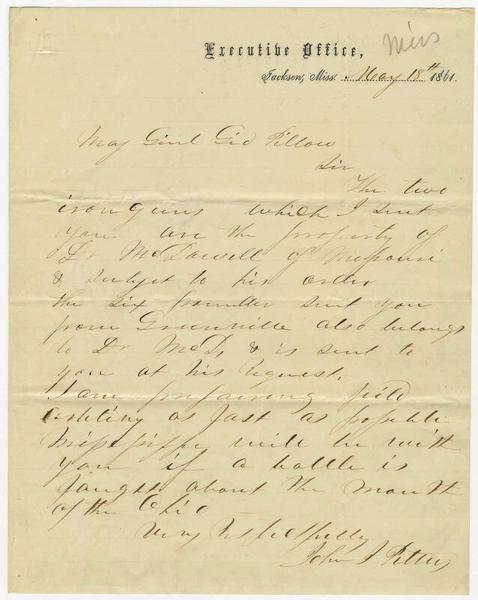 Miss
Executive Office,
Jackson, Miss. May 18th 1861.
Maj Genl Gid Pillow
Sir
The two
iron guns which I sent
you are the property of
Dr McDowell of Missouri
& subject to his order
the six pounder sent you
from Greenville also belongs
to Dr McD, & is sent to
you at his request.
I am preparing field
artillery as fast as possible
Mississippi will be with
you if a battle is
fought about the mouth
of the Ohio
Very Respectfully
John J Pettus